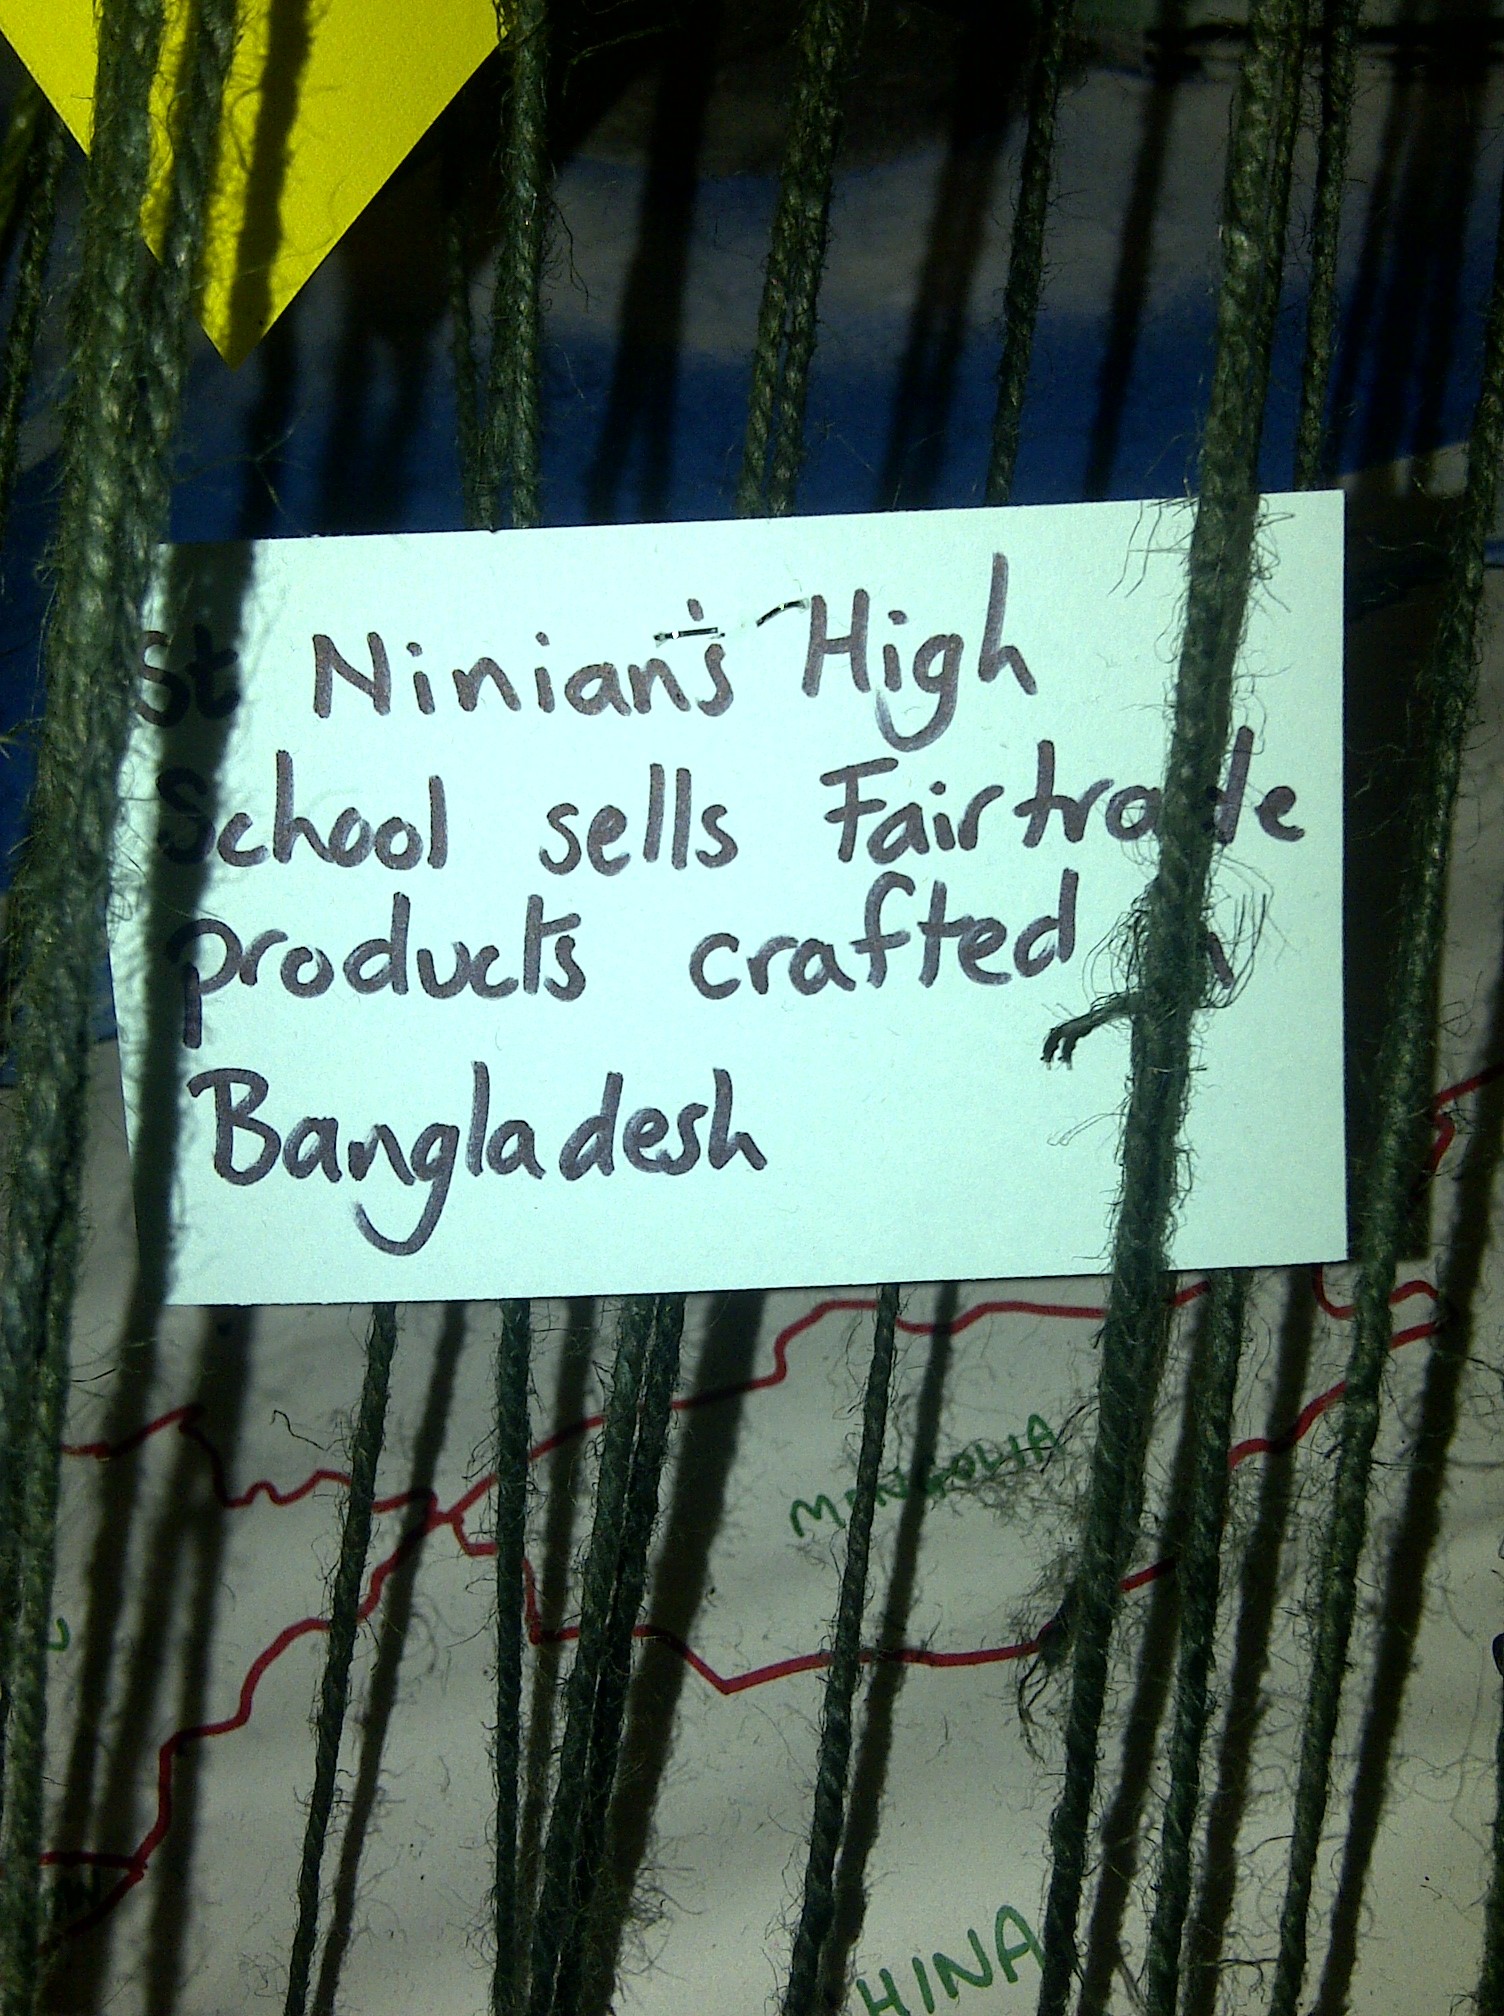 St Ninian's High
School sells Fairtrade
products crafted in
Bangladesh
MONGOLIA
HINA